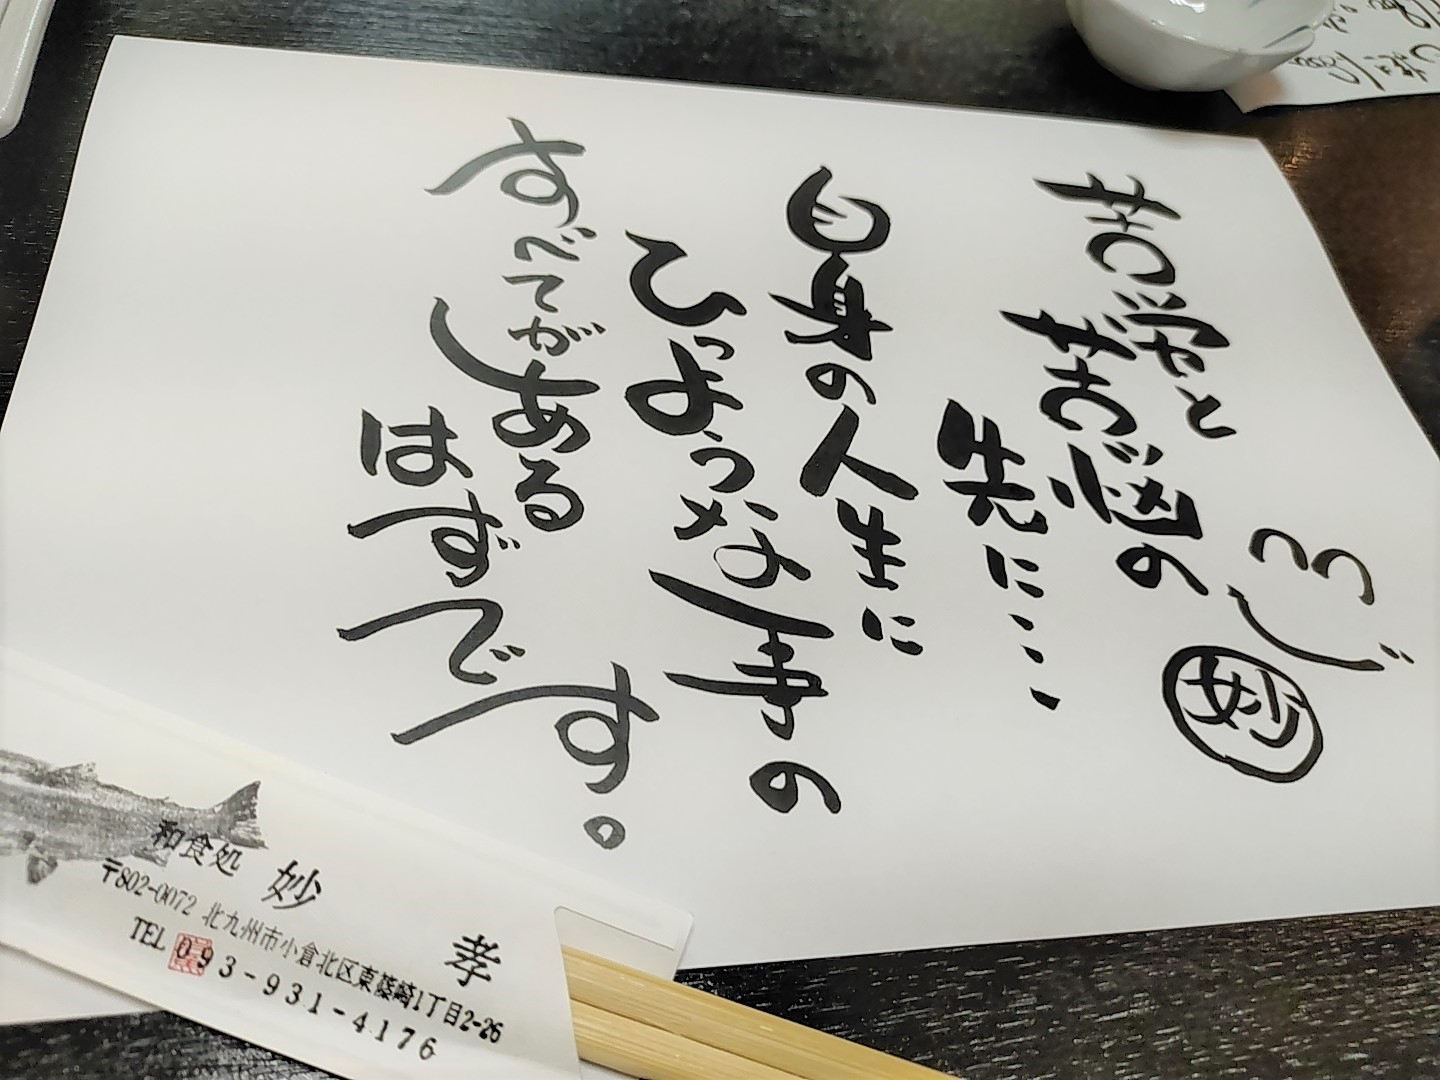 妙
苦労と
苦悩の
先に・・・・
自身の人生に
ひつような事の
すべてがある
はずです。
和食処 妙 孝
〒802-0072 北九州市小倉北区東篠崎1丁目2-26
TEL 093-931-4176